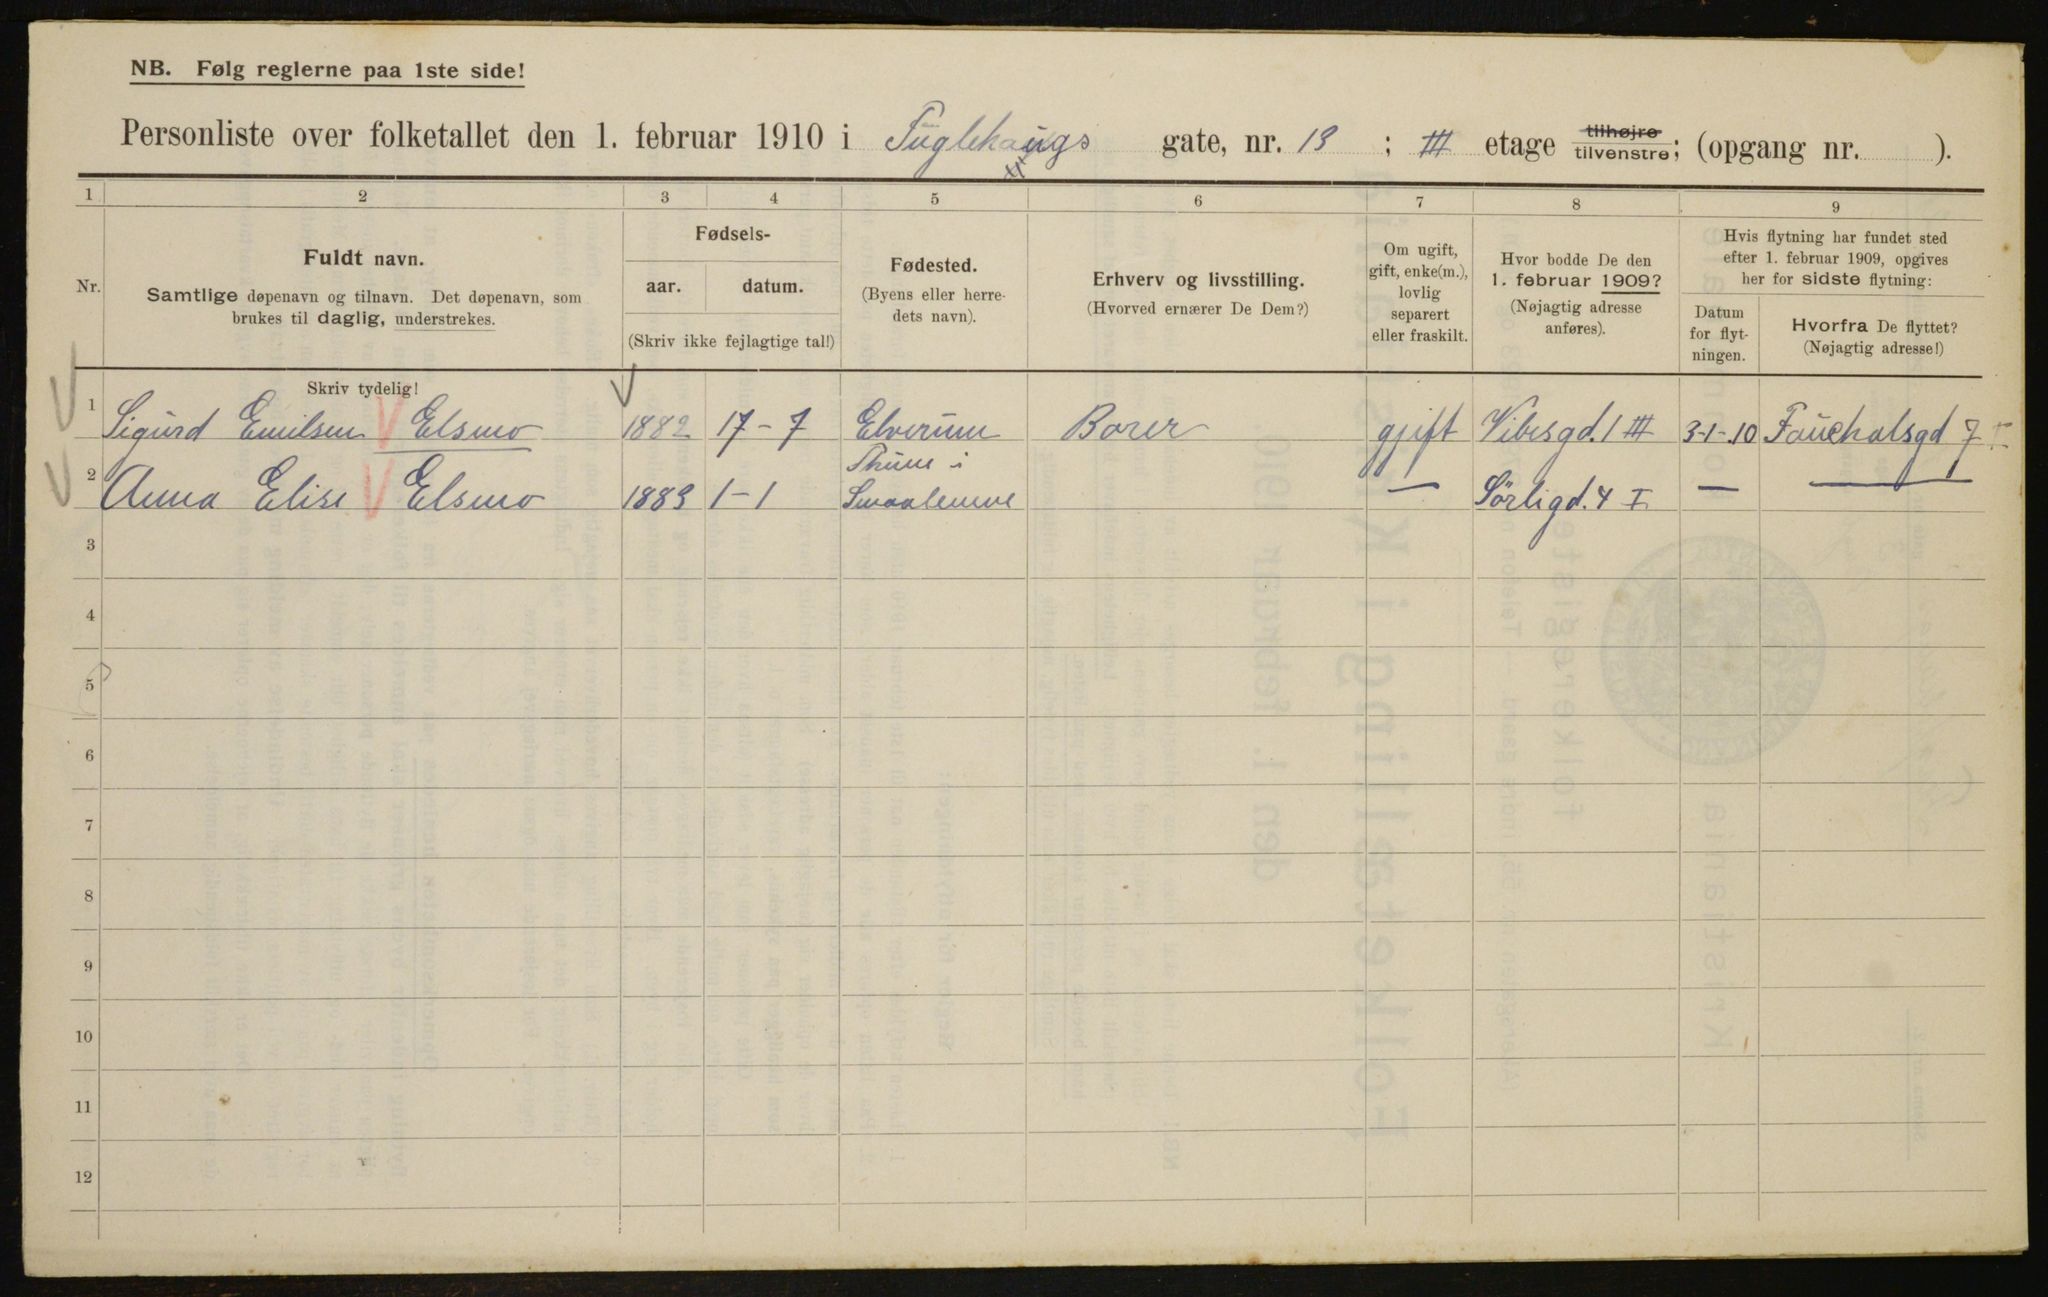 NB. Følg reglerne paa 1ste side!
Personliste over folketallet den 1. februar 1910 i Fuglehaugs gate, nr. 13 ; III etage tilhøjre tilvenstre; (opgang nr. ).
1 2 3 4 5 6 7 8 9
Nr.
Fuldt navn.
Samtlige døpenavn og tilnavn. Det døpenavn, som
brukes til daglig, understrekes.
Fødsels-
aar. datum.
(Skriv ikke fejlagtige tal!)
Fødested.
(Byens eller herre-
dets navn).
Erhverv og livsstilling.
(Hvorved ernærer De Dem?)
Om ugift,
gift, enke(m.),
lovlig
separert
eller fraskilt.
Hvor bodde De den
1. februar 1909?
(Nøjagtig adresse
anføres).
Hvis flytning har fundet sted
efter 1. februar 1909, opgives
her for sidste flytning:
Datum
for flyt-
ningen.
Hvorfra De flyttet?
(Nøjagtig adresse!)
Skriv tydelig!
1 Sigurd Emilsen Elsmo 1882 17-7 Elverum Borer gjift Vibesgd. 1 III 3-1-10 Fauchalsgd 7
2 Anna Elise Elsmo 1883 1-1 i Smaalenene — Sörligd. 4 I — —
3
4
5
6
7
8
9
10
11
12